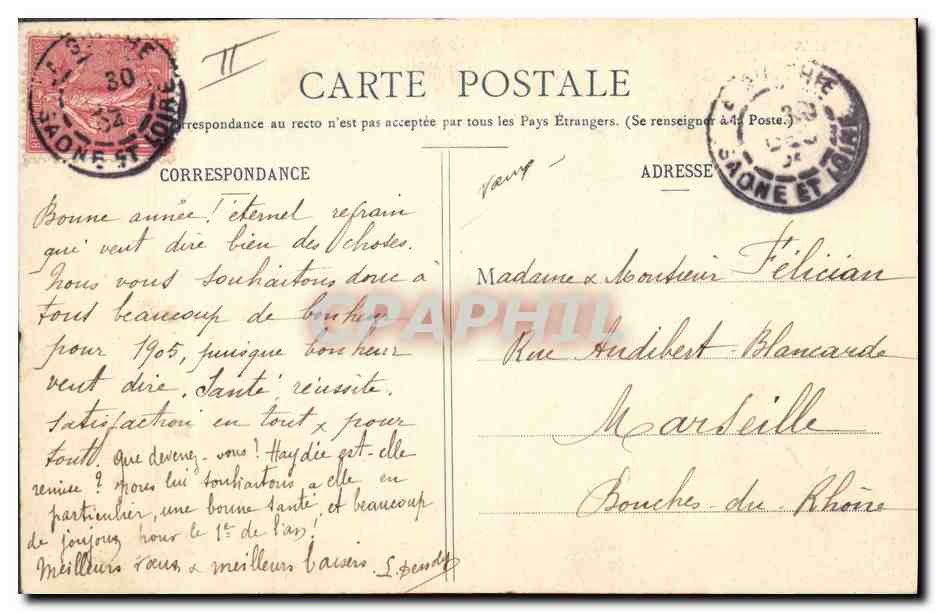 CARTE POSTALE
Correspondance au recto n'est pas acceptée par tous les Pays Étrangers. (Se renseigner à la Poste.)
CORRESPONDANCE
Bonne année! éternel refrain
qui veut dire bien des choses.
Nous vous souhaitons donc à
tous beaucoup de bonheur
pour 1905, puisque bonheur
veut dire, Santé, réussite.
satisfaction en tout & pour
tout. Que devenez-vous? Haydée est-elle
remise? nous lui souhaitons, a elle en
particulier, une bonne santé, et beaucoup
de joujoux pour le 1er de l'an!
Meilleurs vœux & meilleurs baisers.
vœux
ADRESSE
Madame & Monsieur Félician
Rue Audibert-Blancarde
Marseille
Bouches-du-Rhône
30
04
SAONE ET LOIRE
SAONE ET LOIRE
CPAPHIL